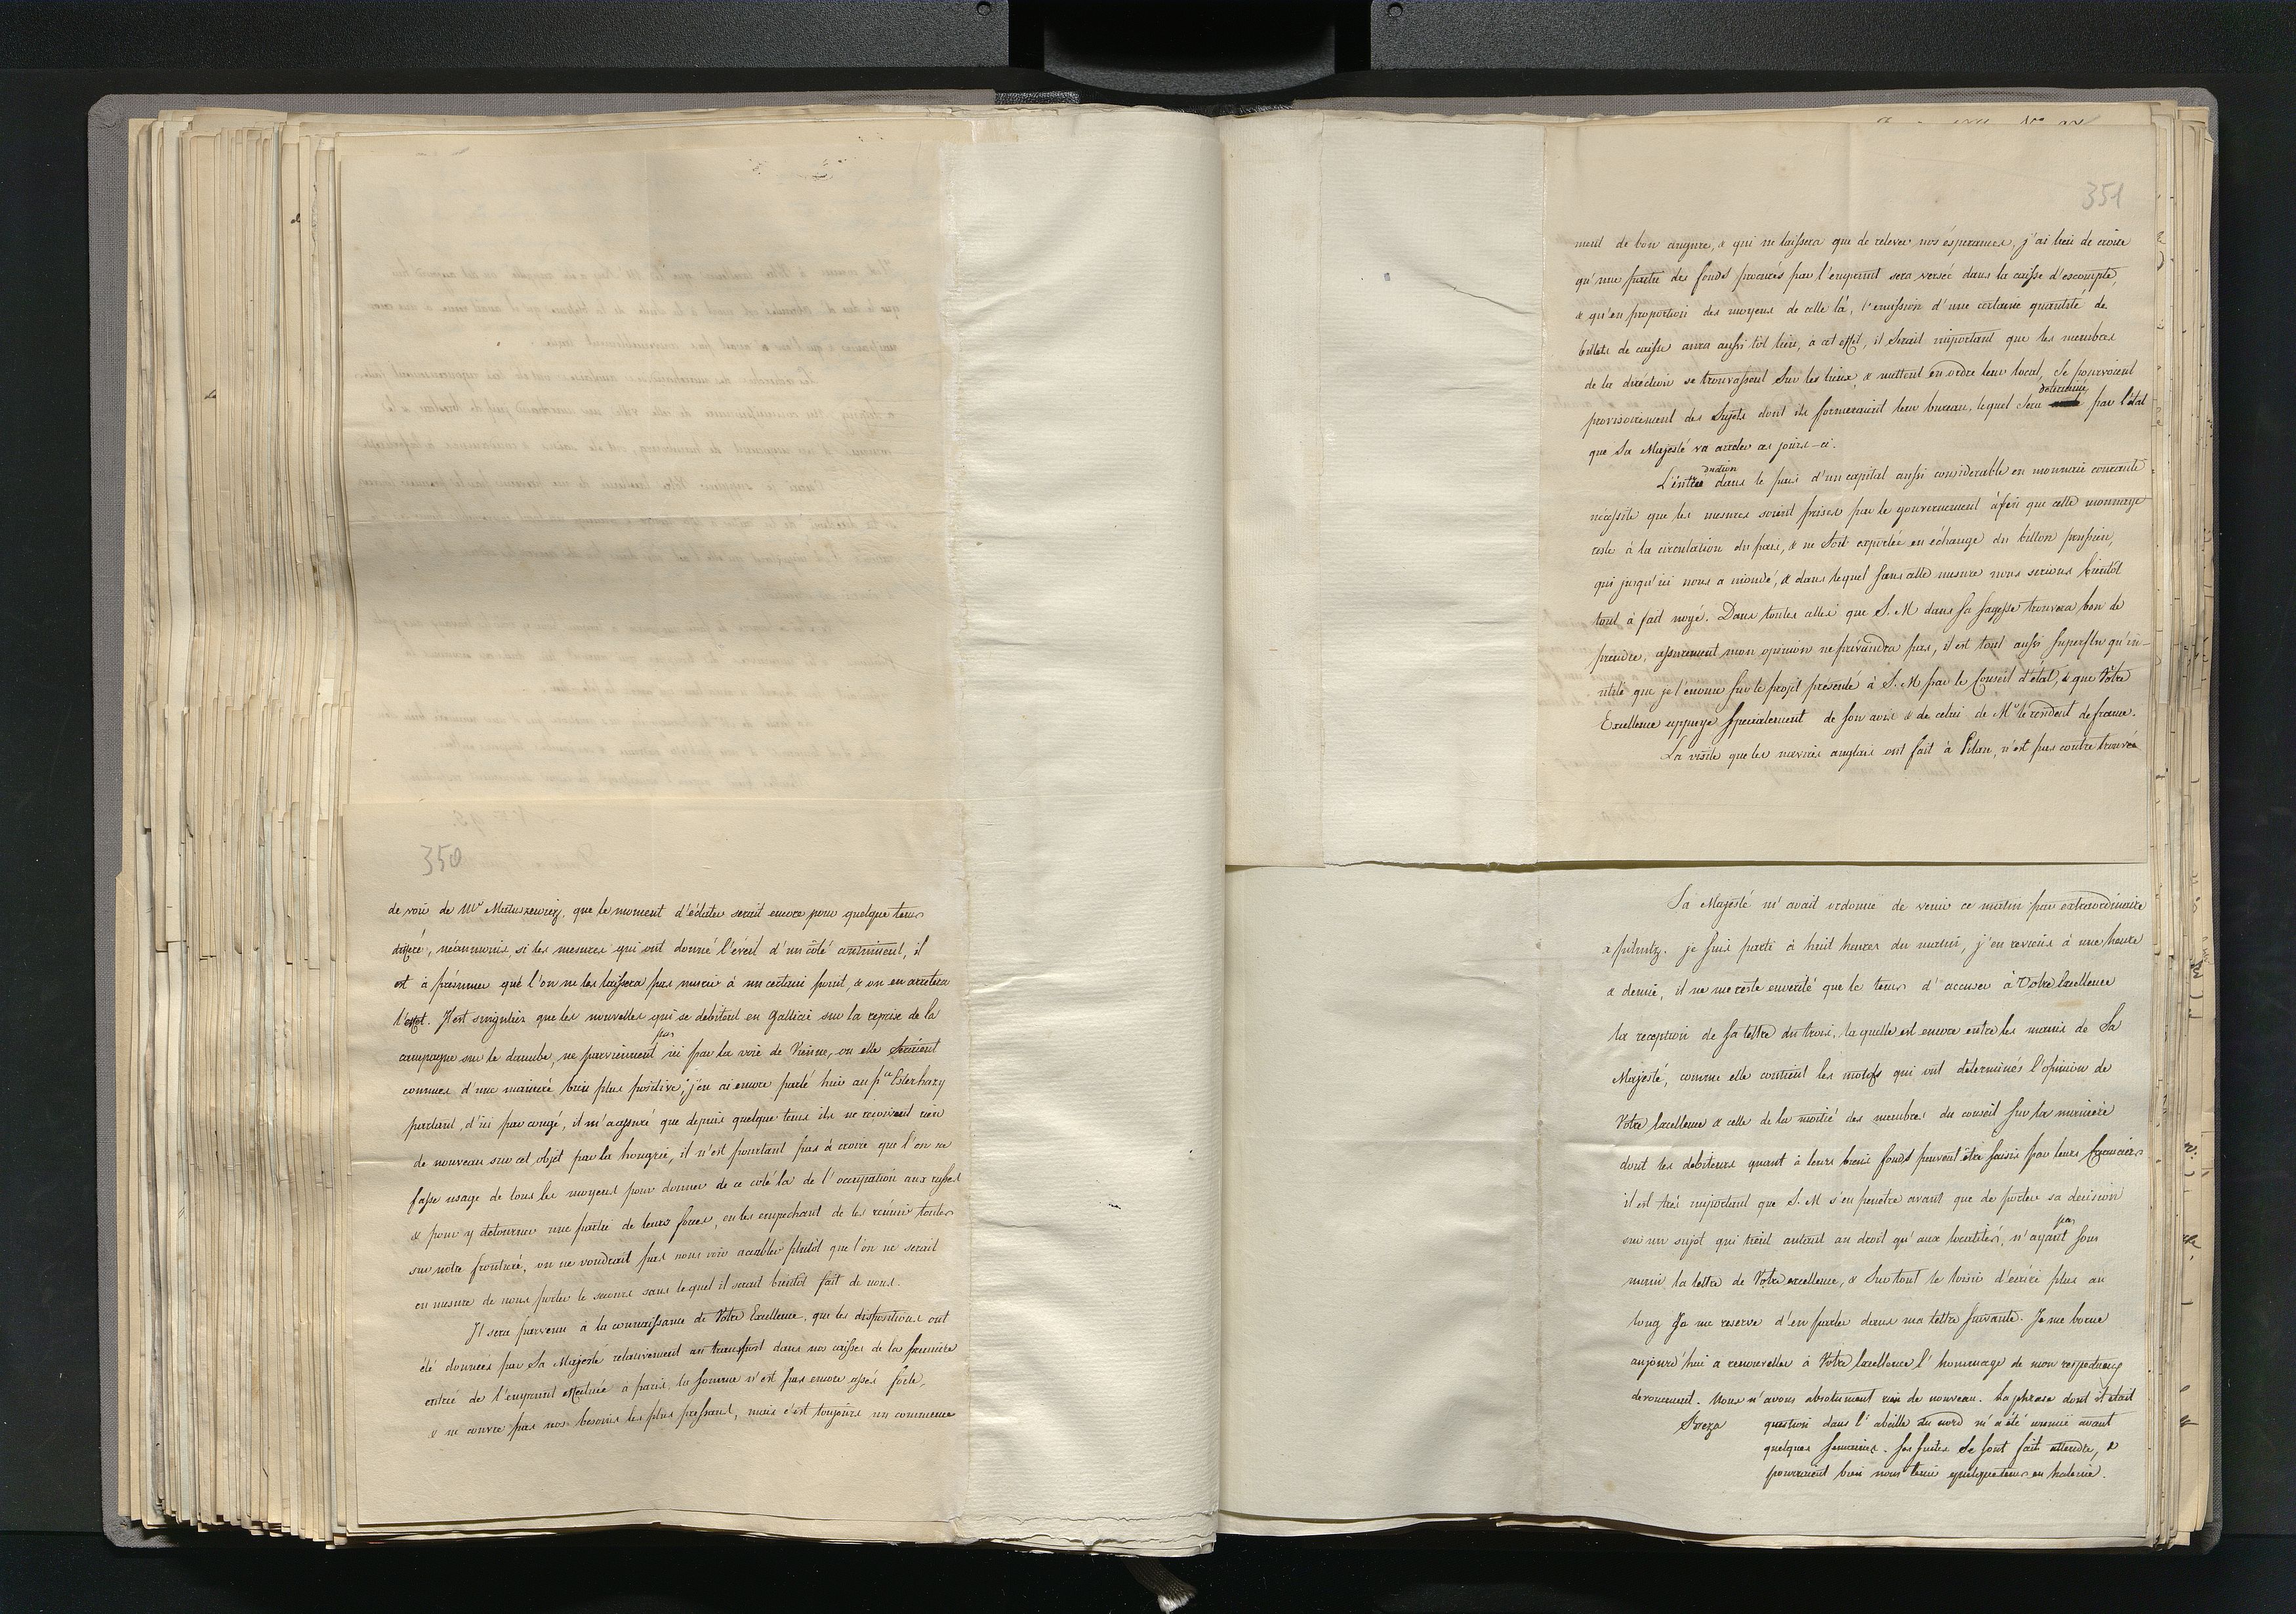 350
de voir de Mr Matuszewicz, que le moment d'éclater serait encore pour quelque tems
differé, néanmoins, si les mesures qui ont donné l'éveil d'un côté continuent, il
est à présumer que l'on ne les laissera pas murir à un certain point, & on en arretera
l'effet. Il est singulier que les nouvelles qui se debitent en Gallicie sur la reprise de la
campagne sur le danube, ne parviennent pas ici par la voie de Vienne, ou elle seraient
connues d'une manière bien plus positive; j'en ai encore parlé hier au pce Esterhazy
partant, d'ici par congé, il m'a assuré que depuis quelque tems ils ne reçoivent rien
de nouveau sur cet objet par la hongrie, il n'est pourtant pas à croire que l'on ne
fasse usage de tous les moyens pour donner de ce coté là de l'occupation aux russes
& pour y detourner une partie de leurs forces, en les empechant de les réunir toutes
sur notre frontière, on ne voudrait pas nous voir accabler plutôt que l'on ne serait
en mesure de nous porter le secours sans lequel il serait bientôt fait de nous.
Il sera parvenu à la connaissance de Votre Excellence, que les dispositions ont
été données par Sa Majesté relativement au transport dans nos caisses de la première
entrée de l'emprunt effectuée à paris, la somme n'est pas encore assés forte,
& ne couvre pas nos besoins les plus pressant, mais c'est toujours un commence
351
ment de bon augure, & qui ne laissera que de relever nos ésperances, j'ai lieu de croire
qu'une partie des fonds procurés par l'emprunt sera versée dans la caisse d'escompte,
& qu'en proportion des moyens de celle là, l'emission d'une certaine quantité de
billets de caisse aura aussi tôt lieu, à cet effet, il serait important que les membres
de la direction se trouvassent sur les lieux, & mettent en ordre leur local, se pourvoient
provisoirement des sujets dont ils formeraient leur bureau, lequel sera determiné par l'état
que Sa Majesté va arreter ces jours-ci.
L'entrée dans le pais d'un capital aussi considerable en monnaie courante
nécessite que les mesures soient prises par le gouvernement afin que cette monnaye
reste à la circulation du pais, & ne soit exportée en échange du billon prussien,
qui jusqu'ici nous a inondé, & dans lequel sans cette mesure nous serions bientôt
tout à fait noyé. Dans toutes celles que S. M dans sa sagesse trouvera bon de
prendre, assurement mon opinion ne prévaudra pas, il est tout aussi superflu qu'in-
utile que je l'enonce sur le projet présenté à S. M par le Conseil d'état, & que Votre
Excellence appuye specialement de son avis & de celui de Mr le resident de france.
La visite que les navires anglais ont fait à Pilau, n'est pas contre trouvée
Sa Majesté m'avait ordonné de venir ce matin par extraordinaire
a pilnitz. je suis parti à huit heures du matin, j'en reviens à une heure
& demie, il ne me reste enverité que le tems d'accuser à Votre Excellence
la reception de sa lettre du trois, la quelle est encore entre les mains de Sa
Majesté, comme elle contient les motifs qui ont determinés l'opinion de
Votre Excellence & celle de la moitié des membres du conseil sur la manière
dont les debiteurs quant à leurs biens fonds peuvent être saisis par leurs créanciers
il est très important que S. M s'en penetre avant que de porter sa decision
sur un sujet qui tient autant au droit qu'aux localités, n'ayant pas sous
main la lettre de Votre excellence, & sur tout le loisir d'écrire plus au
long Je me reserve d'en parler dans ma lettre suivante. Je me borne
aujourd'hui a renouveller à Votre Excellence l'homenage de mon respectueux
devouement. Nous n'avons absolument rien de nouveau. La phrase dont il était
Breza question dans l'abeille du nord m'a été connue avant
quelques semaines. Ses suites se sont fait attendre, &
pourraient bien nous tenir quelque tems en haleine.